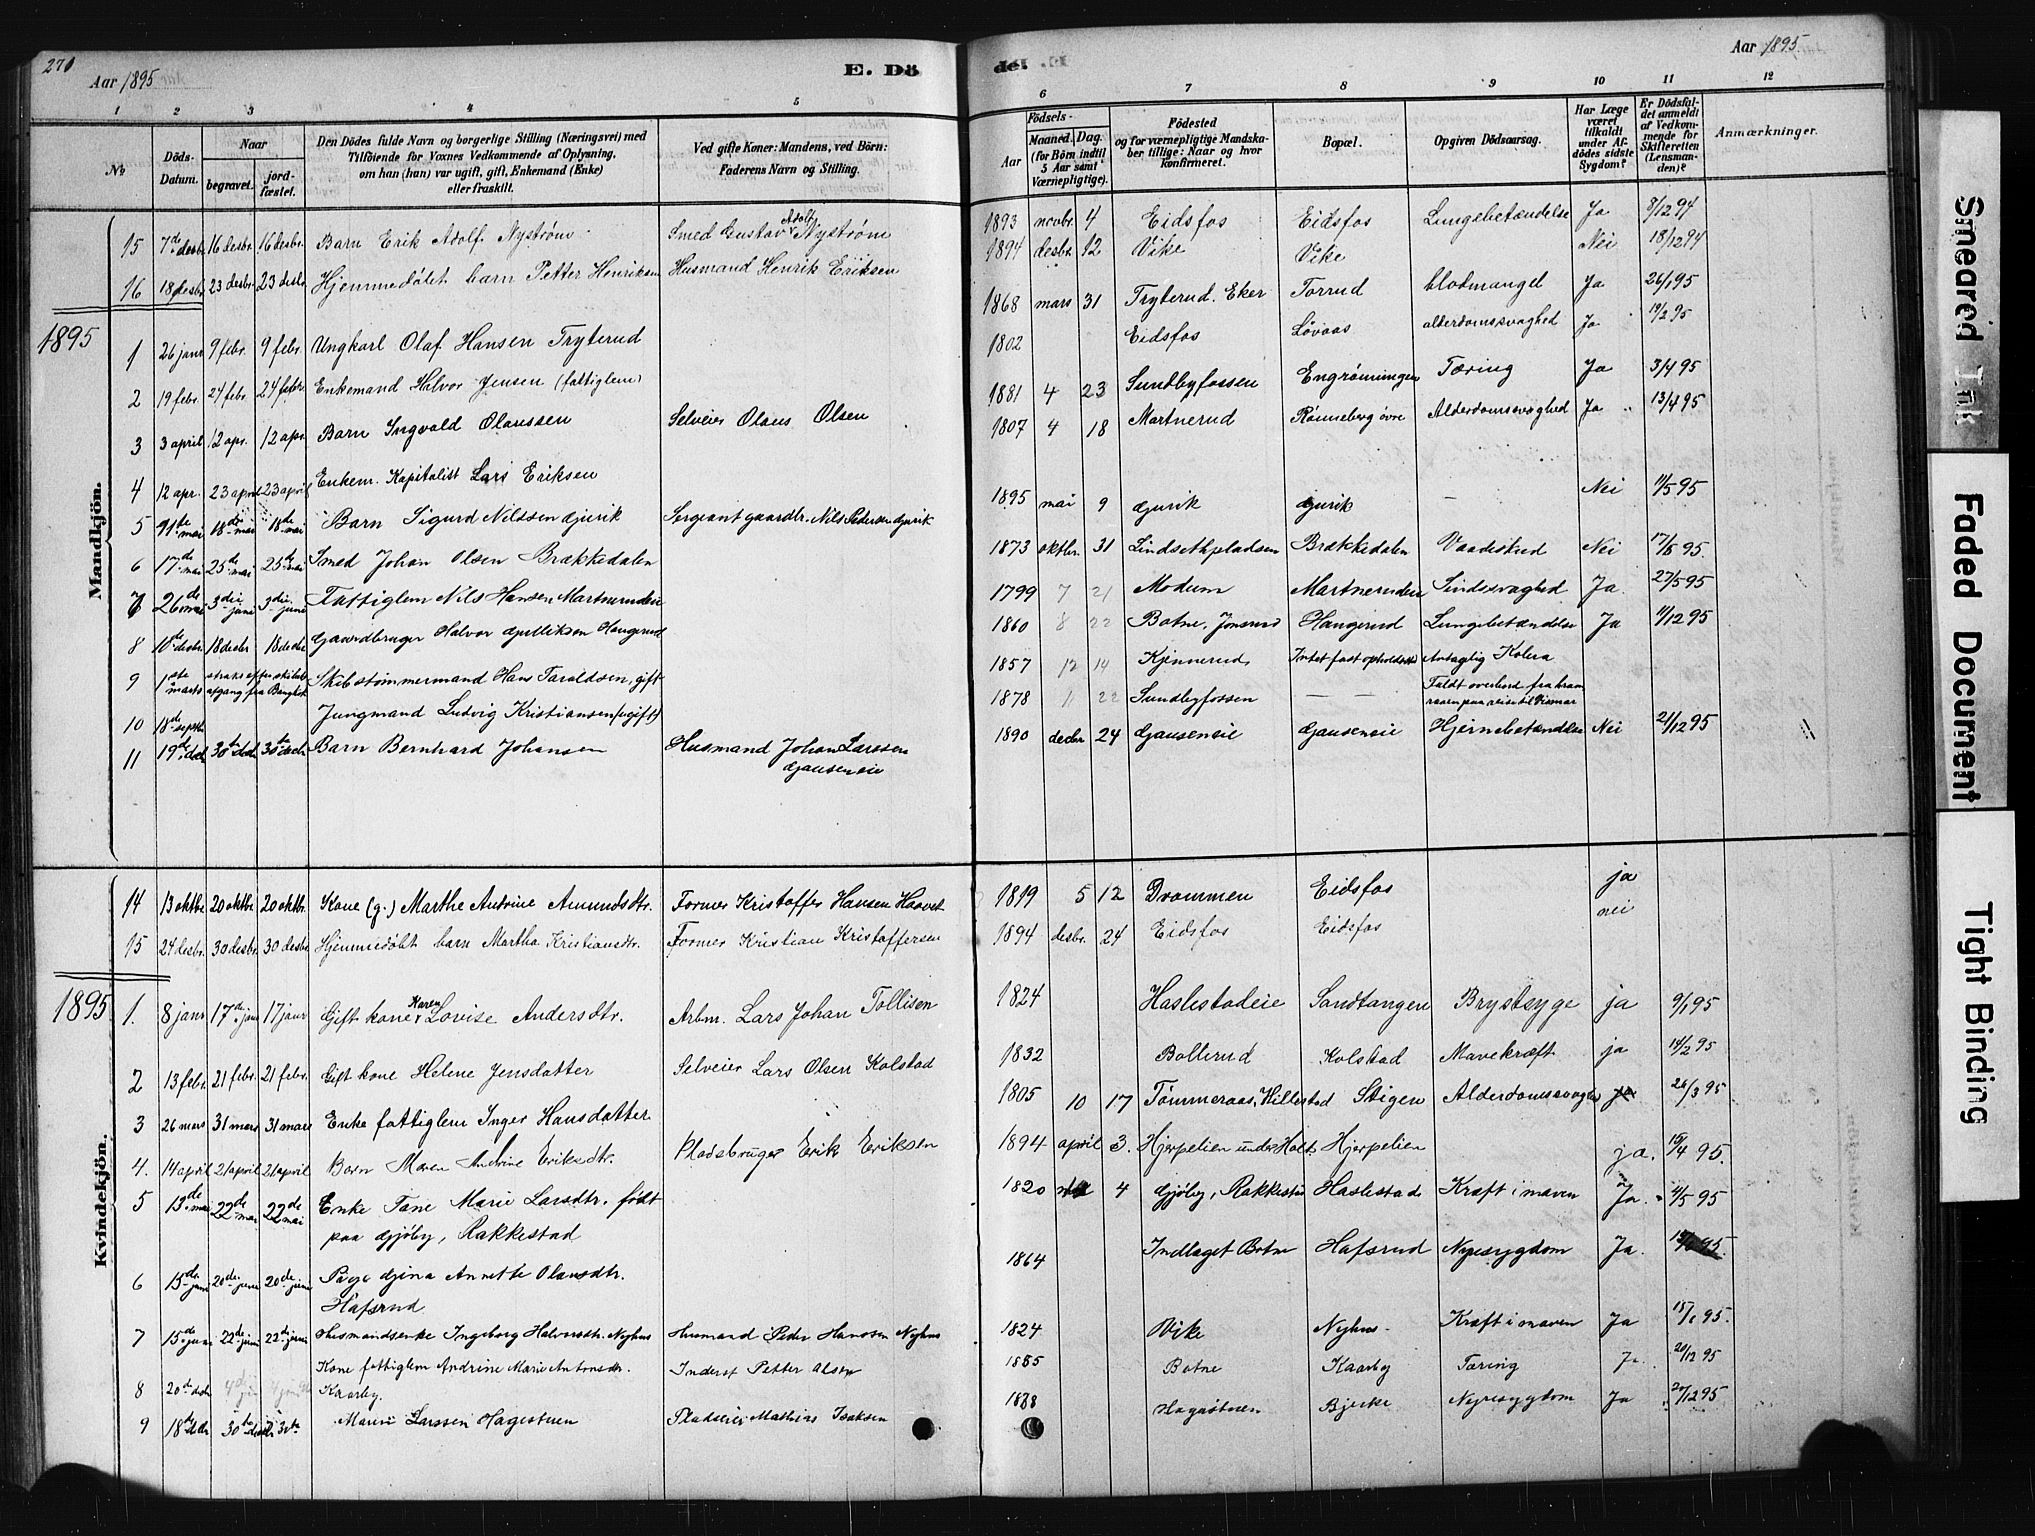 270
Aar 1895
E. Döde.
Aar 1895
1 2 3 4 5 6 7 8 9 10 11 12
№
Döds-Datum.
Naar
begravet.
jord-fæstet.
Den Dödes fulde Navn og borgerlige Stilling (Næringsvei) med
Tilföiende for Voxnes Vedkommende af Oplysning,
om han (hun) var ugift, gift, Enkemand (Enke)
eller fraskilt.
Ved gifte Koner: Mandens, ved Börn:
Faderens Navn og Stilling.
Födsels-
Aar
Maaned. Dag.
(for Börn indtil
5 Aar samt
Værnepligtige).
Födested
og for værnepligtige Mandska-
ber tillige: Naar og hvor
konfirmeret.
Bopæl.
Opgiven Dödsaarsag.
Har Læge
været
tilkaldt
under Af-
dödes sidste
Sygdom?
Er Dödsfal-
det anmeldt
af Vedkom-
mende for
Skifteretten
(Lensman-
den)?
Anmærkninger.
Mandkjön.
15 7de desbr. 16 desbr. 16 desbr. Barn Erik Adolf Nystrøm Smed Gustav Adolf Nystrøm 1893 novbr. 4 Eidsfos Eidsfos Lungebetændelse Ja 8/12 94
16 18 desbr 23 desbr. 23 desbr. Hjemmedøbt barn Petter Henriksen Husmand Henrik Eriksen 1894 desbr. 12 Vike Vike Nei 18/12 94
1895
1 26 janr 9 febr. 9 febr. Ungkarl Olaf Hansen Tryterud 1868 mars 31 Tryterud. Eker Torrud blodmangel Ja 26/1 95
2 19 febr. 24 febr. 24 febr. Enkemand Halvor Jensen (fattiglem) 1802 Eidsfos Løvaas alderdomssvaghed Ja 19/2 95
3 3 april 12 apr. 12 apr. Barn Ingvald Olaussen Selveier Olaus Olsen 1881 4 23 Sundbyfossen Engrønningen Tæring Ja 3/4 95
4 12 apr. 23 april 23 april Enkem. Kapitalist Lars Eriksen 1807 4 18 Martnerud Rønneberg øvre Alderdomssvaghed Ja 13/4 95
5 mai 18de mai 18de mai Barn Sigurd Nilssen Gjurik Sergeant gaardbr. Nils Pedersen Gjurik 1895 mai 9 Gjurik Gjurik — Nei 11/5 95
6 17de mai 25de mai 25de mai Smed Johan Olsen Brækkedalen 1873 oktbr. 31 Lindsethpladsen Brækkedalen Vaadeskud Nei 17/5 95.
7 26de mai 3die juni 3die juni Fattiglem Nils Hansen Martnerudeie 1799 7 21 Modum Martnerudeie Sindssvaghed Ja. 27/5 95
8 10de desbr 18 decbr 18 decbr Gaardbruger Halvor Gulliksen Haugerud 1860 8 22 Botne, Jonsrud Haugerud Lungebetændelse Ja 11/12 95
9 1ste marts straks efter skibets afgang fra Bangkok Skibstømmermand Hans Taraldsen, gift 1857 12 14 Kjennerud Intet fast opholdssted Antagelig Kolera
10 18de septbr Jungmand Ludvig Kristiansen (ugift) 1878 11 22 Sundbyfossen — — Faldt overbord fra paa reise til
11 19de decbr 30te decbr 30te decbr Barn Bernhard Johansen Husmand Johan Larssen Gauseneie 1890 decbr 24 Gauseneie Gauseneie Hjernebetændelse Nei 21/12 95
Kvindekjön.
14 13 oktbr 20 oktbr. 20 oktbr. Kone (g.) Marthe Andrine Amundsdtr. Former Kristoffer Hansen Haavet 1819 5 12 Drammen Eidsfos ja
15 24 desbr. 30 desbr. 30 desbr. Hjemmedøbt barn Martha Kristiansdtr. Former Kristian Kristoffersen 1894 desbr. 24 Eidsfos Eidsfos nei
1895
1. 8 janr 17de janr 17 janr Gift kone Karen Lovise Andersdtr. Arbm. Lars Johan Tollisen 1824 Haslestadeie Sandtangen Brystsyge ja 9/1 95
2 13 febr. 21 febr. 21 febr. Gift kone Helene Jensdatter Selveier Lars Olsen Kolstad 1832 Bollerud Kolstad Mavekræft ja 14/2 95
3 26 mars 31 mars 31 mars Enke fattiglem Inger Hansdatter 1805 10 17 Tømmeraas, Hillestad Stigen Alderdomssvaghed 26/3 95
4. 14 april 21 april 21 april Barn Maren Andrine Eriksdtr. Pladsbruger Erik Eriksen 1894 april 3. Hjerpelien under Holt Hjerpelien ja. 15/4 95.
5 13de mai 22de mai 22de mai Enke Tane Marie Larsdtr. født paa Gjøby, Rakkestad 1820 4 Gjøby, Rakkestad Haslestad Kræft i maven Ja. 95
6 15de juni 20de juni 20de juni Pige Gjina Annette Olausdtr. Hafsrud 1864 Indlaget Botne Hafsrud Nyresygdom Ja. 95.
7 15de juni 22de juni 22de juni Husmandsenke Ingeborg Halvorsdtr. Nyhus Husmand Peder Hanssen Nyhus 1824 Vike Nyhus Kræft i maven Ja 95.
8 20de decbr Kone fattiglem Andrine Marie Antonsdtr. Kaarby. Inderst Petter Olsen Botne Kaarby Tæring Ja. 20/12 95
9 18de decbr 30te decbr 30te Marie Larssen Hagestuen Pladseier Mathias Isaksen Hagestuen Bjerke Nyresygdom Ja 20/12 95
Smeared Ink
Faded Document
Tight Binding